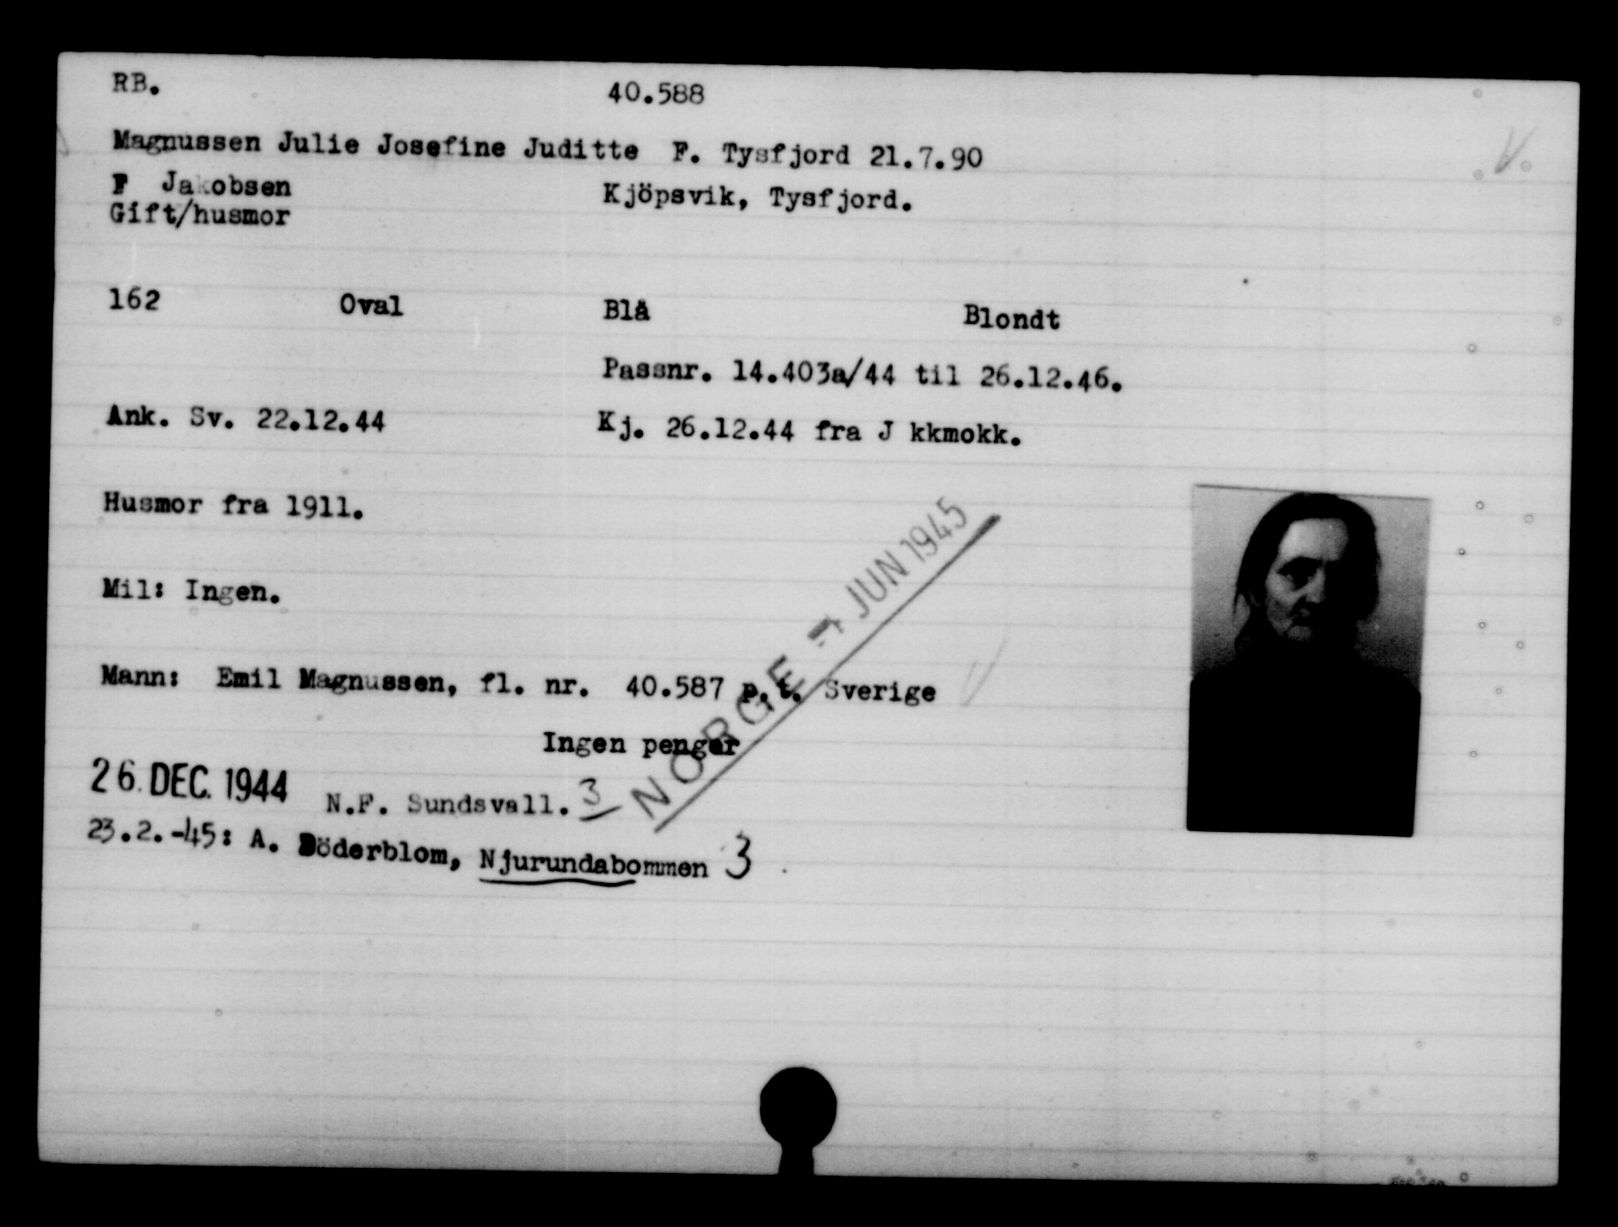 RB. 40.588
Magnussen Julie Josefine Juditte F. Tysfjord 21.7.90
F Jakobsen Kjöpsvik, Tysfjord.
Gift/husmor
162 Oval Blå Blondt
Passnr. 14.403a/44 til 26.12.46.
Ank. Sv. 22.12.44 Kj. 26.12.44 fra J kkmokk.
Husmor fra 1911.
Mil: Ingen.
Mann: Emil Magnussen, fl. nr. 40.587 p.t. Sverige
Ingen penger
NORGE JUN 1945
26. DEC. 1944 N.F. Sundsvall. 3
23.2.-45: A. Söderblom, Njurundabommen 3